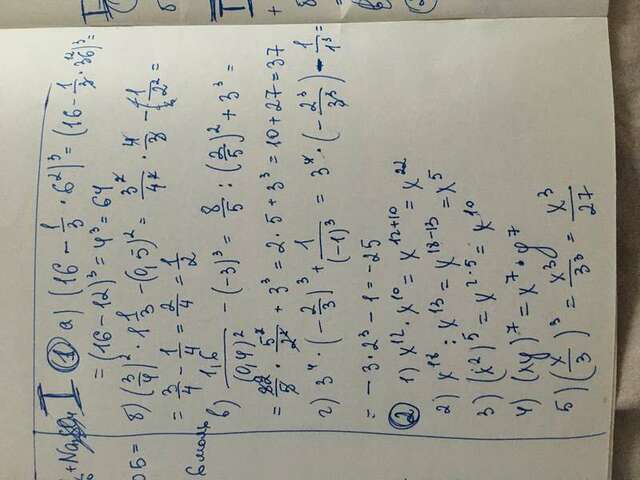 + Na₂SO₄
I ① а) (16 - 1/3 · 6²)³ = (16 - 1/3 · 36)³ =
= (16 - 12)³ = 4³ = 64
б) (3/4)² · 1 1/3 - (0,5)² = 3²/4² · 4/3 - 1/2² =
= 3/4 - 1/4 = 2/4 = 1/2
в) 1,6/(0,4)² - (-3)³ = 8/5 : (2/5)² + 3³ =
= 8/5 · 5²/2² + 3³ = 2 · 5 + 3³ = 10 + 27 = 37
г) 3⁴ · (-2/3)³ + 1/(-1)³ = 3⁴ · (-2³/3³) - 1/1³ =
= - 3 · 2³ - 1 = -25
② 1) x¹² · x¹⁰ = x¹²⁺¹⁰ = x²²
2) x¹⁸ : x¹³ = x¹⁸⁻¹³ = x⁵
3) (x²)⁵ = x²˙⁵ = x¹⁰
4) (xy)⁷ = x⁷ · y⁷
5) (x/3)³ = x³/3³ = x³/27
05 =
моль